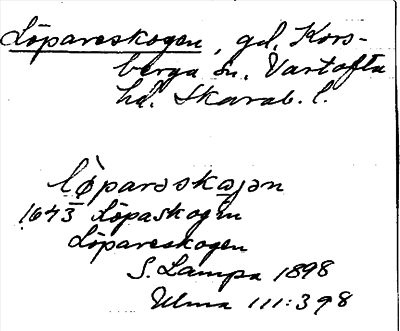 Löpareskogen, gd, Kors-
berga sn, Vartofta
hd. Skarab. l.
lö̀parəskaɷjən
1643 Löpaskogen
Löpareskogen
S. Lampa 1898
Ulma 111:398